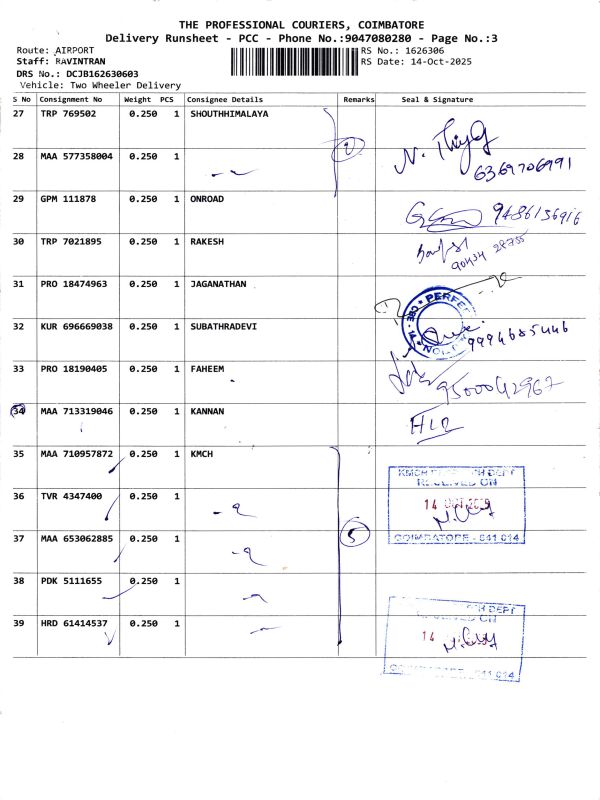 THE PROFESSIONAL COURIERS, COIMBATORE
Delivery Runsheet - PCC - Phone No.:9047080280 - Page No.:3
Route: AIRPORT
RS No.: 1626306
Staff: RAVINTRAN
RS Date: 14-Oct-2025
DRS No.: DCJB162630603
Vehicle: Two Wheeler Delivery
S No Consignment No Weight PCS Consignee Details Remarks Seal & Signature
27 TRP 769502 0.250 1 SHOUTHIMALAYA
28 MAA 577358004 0.250 1
6369706991
29 GPM 111878 0.250 1 ONROAD
9486136916
30 TRP 7021895 0.250 1 RAKESH
31 PRO 18474963 0.250 1 JAGANATHAN
32 KUR 696669038 0.250 1 SUBATHRADEVI
9994685446
33 PRO 18190405 0.250 1 FAHEEM
9500042967
34 MAA 713319046 0.250 1 KANNAN
35 MAA 710957872 0.250 1 KMCH
36 TVR 4347400 0.250 1
14 OCT
37 MAA 653062885 0.250 1 5
COIMBATORE - 641 014
38 PDK 5111655 0.250 1
39 HRD 61414537 0.250 1
14
COIMBATORE - 641 014